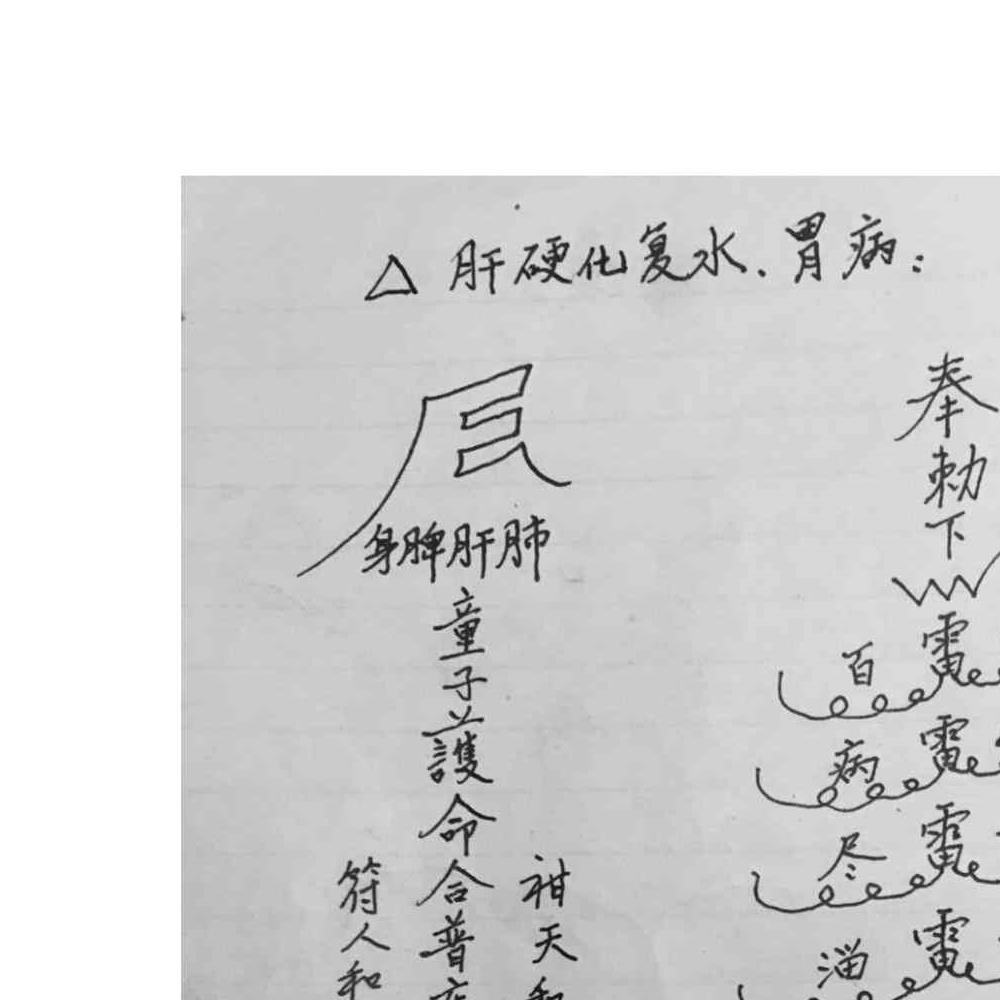 △ 肝硬化复水、胃病:
身脾肝肺
童子
護命合普
符人和
天和
奉勅下
雷雷雷雷
百病尽